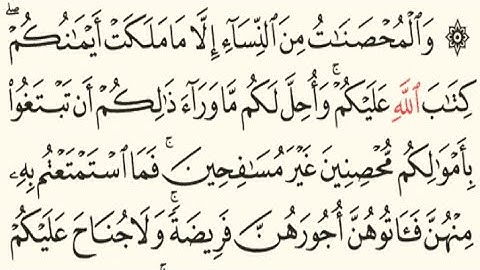 ۞ وَٱلْمُحْصَنَـٰتُ مِنَ ٱلنِّسَآءِ إِلَّا مَا مَلَكَتْ أَيْمَـٰنُكُمْ ۖ
كِتَـٰبَ ٱللَّهِ عَلَيْكُمْ ۚ وَأُحِلَّ لَكُم مَّا وَرَآءَ ذَٰلِكُمْ أَن تَبْتَغُوا۟
بِأَمْوَٰلِكُم مُّحْصِنِينَ غَيْرَ مُسَـٰفِحِينَ ۚ فَمَا ٱسْتَمْتَعْتُم بِهِۦ
مِنْهُنَّ فَـَٔاتُوهُنَّ أُجُورَهُنَّ فَرِيضَةً ۚ وَلَا جُنَاحَ عَلَيْكُمْ